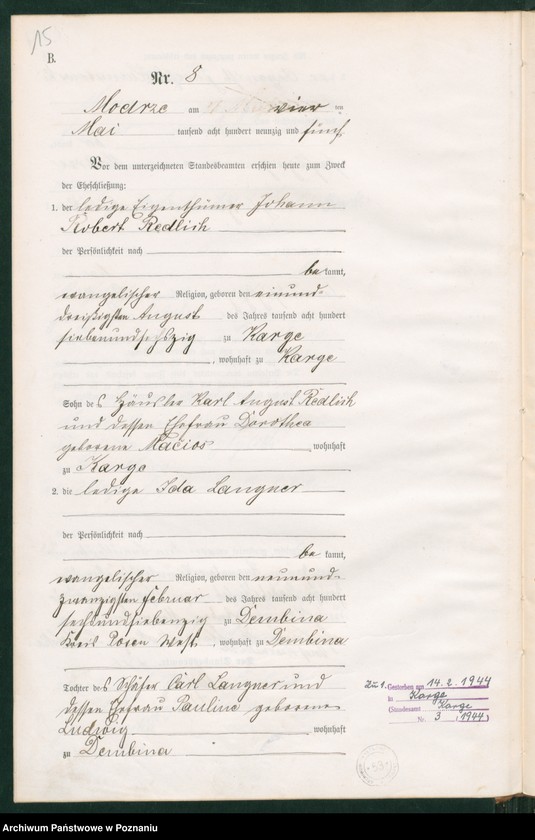 15
B.
Nr. 8
Modrze am vier ten
Mai tausend acht hundert neunzig und fünf
Vor dem unterzeichneten Standesbeamten erschien heute zum Zweck
der Eheschließung:
1. der ledige Eigenthümer Johann
Robert Redlich
der Persönlichkeit nach
be kannt,
evangelischer Religion, geboren den einund-
dreißigsten August des Jahres tausend acht hundert
siebenundsechszig zu Karge
, wohnhaft zu Karge
Sohn des Häusler Karl August Redlich
und dessen Ehefrau Dorothea
geborene Macios wohnhaft
zu Karge
2. die ledige Ida Langner
der Persönlichkeit nach
be kannt,
evangelischer Religion, geboren den neunund-
zwanzigsten Februar des Jahres tausend acht hundert
sechsundsiebenzig zu Dembina
Kreis Posen West, wohnhaft zu Dembina
Tochter des Schäfer Carl Langner und
dessen Ehefrau Pauline geborene
Ludwig wohnhaft
zu Dembina
Zu 1. Gestorben am 14.2.1944
in Karge
(Standesamt Karge
Nr. 3 (1944)
Archiwum Państwowe w Poznaniu